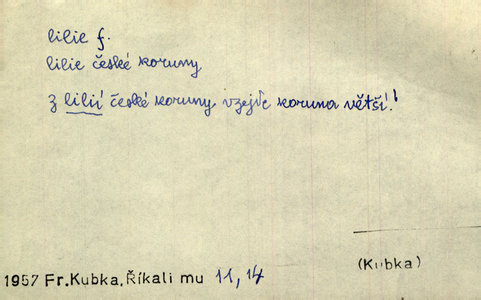 lilie f.
lilie české koruny
z lilií české koruny vzejde koruna větší!
(Kubka)
1957 Fr.Kubka,Říkali mu 11,14